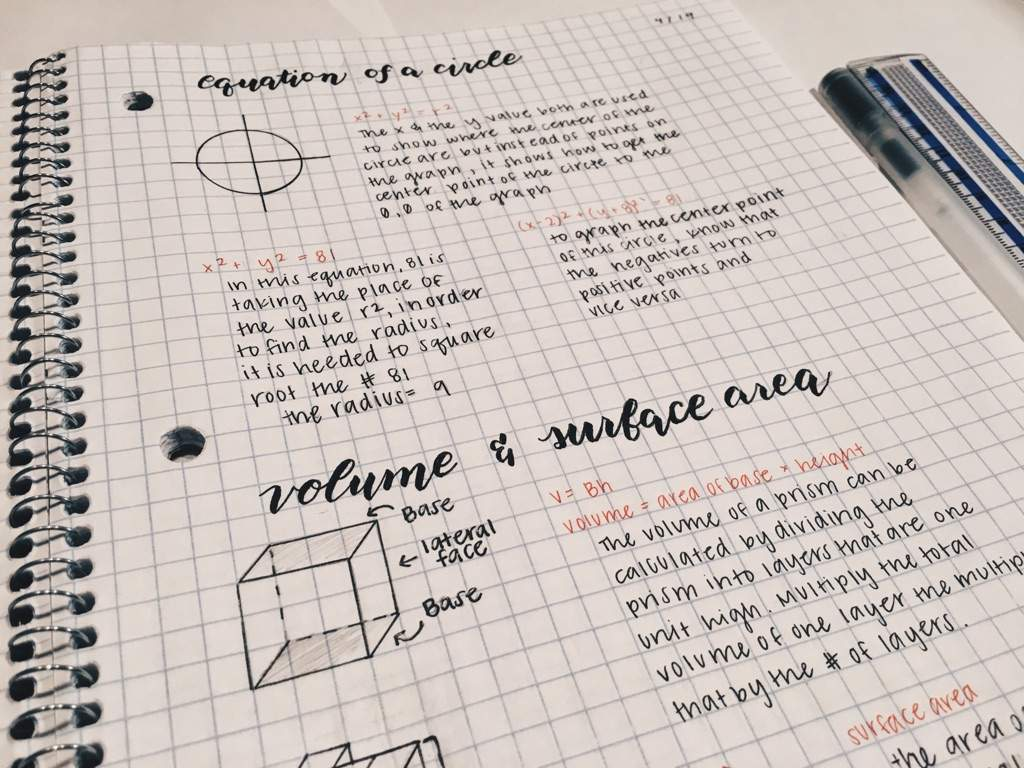 4/14
equation of a circle
x² + y² = r²
The x & the y value both are used
to show where the center of the
circle are, but instead of points on
the graph, it shows how to get the
center point of the circle to the
0,0 of the graph
x² + y² = 81
in this equation, 81 is
taking the place of
the value r2, in order
to find the radius,
it is needed to square
root the # 81
the radius = 9
to graph the center point
of this circle, know that
the negatives turn to
positive points and
vice versa
volume & surface area
Base
lateral
face
Base
V = Bh
volume = area of base × height
The volume of a prism can be
calculated by dividing the
prism into layers that are one
unit high. Multiply the total
volume of one layer the multip
that by the # of layers.
surface area
the area